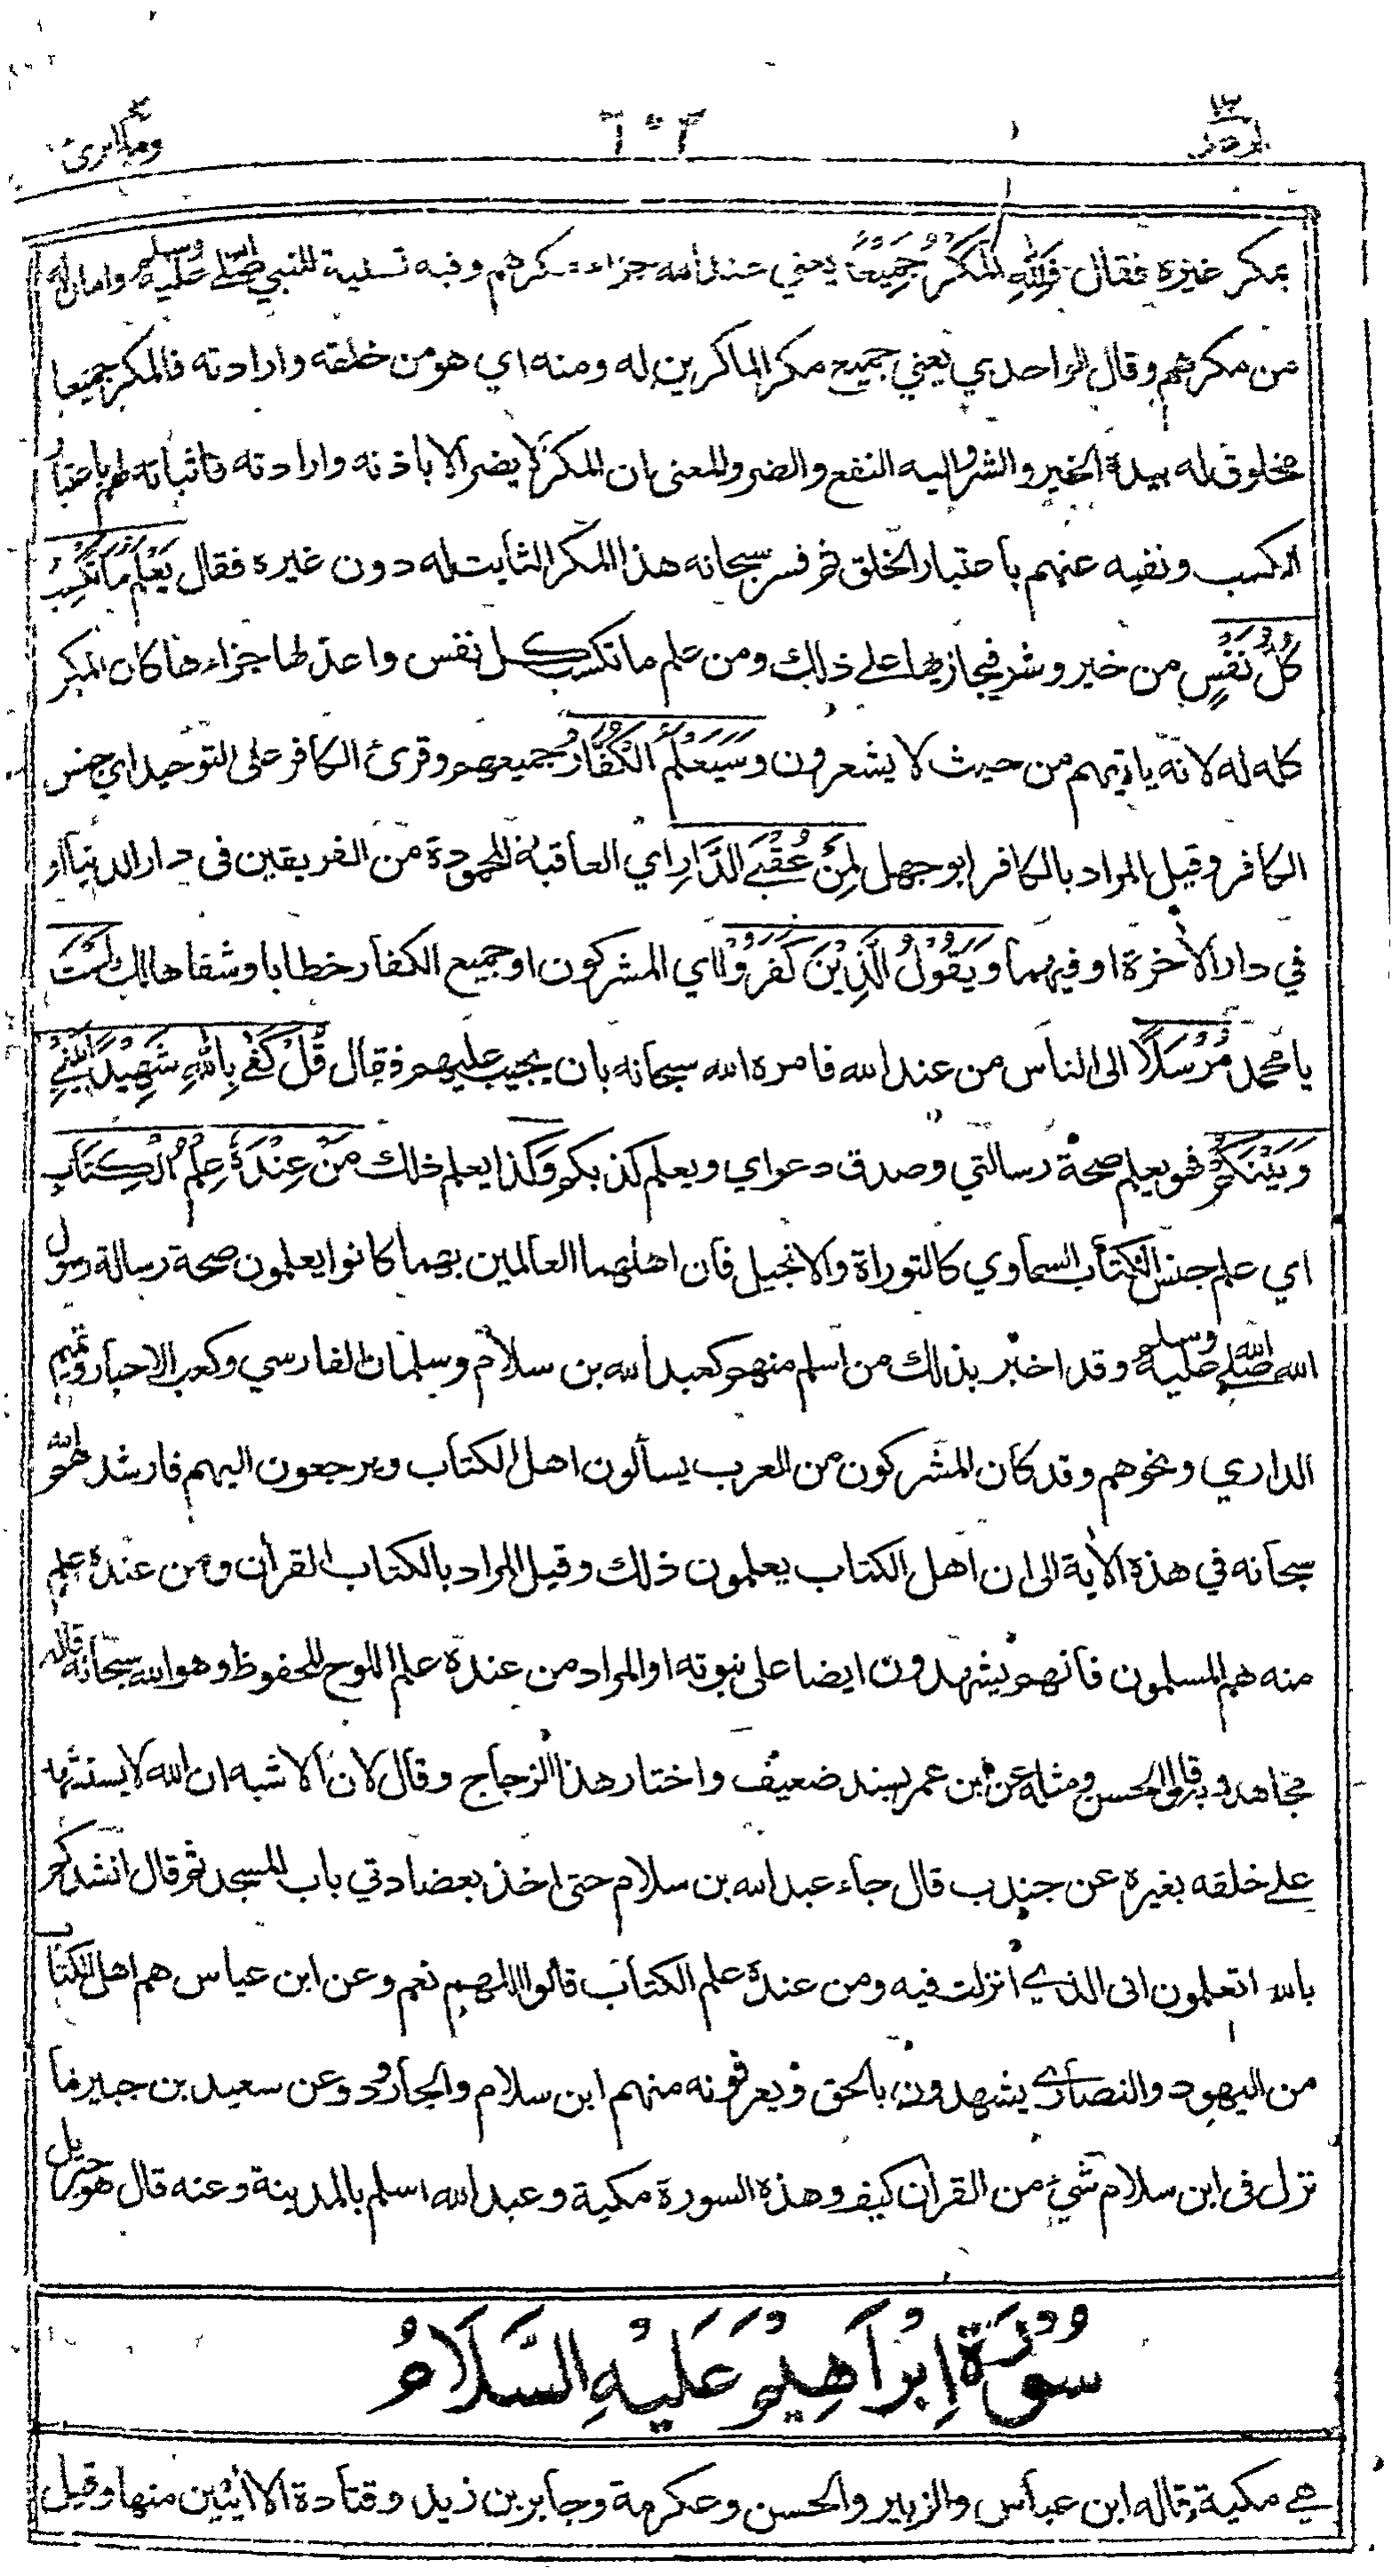 وما ابرئ
الرعد ١٣
بمكر غيره فقال فَلِلّٰهِ الْمَكْرُ جَمِيْعًا يعني عند الله جزاء مكرهم وفيه تسلية للنبي صلى الله عليه وسلم وامان له
من مكرهم وقال الواحدي يعني جميع مكر الماكرين له ومنه اي هو من خلقه وارادته فالمكر جميعا
مخلوق له بيده الخير والشر واليه النفع والضر والمعنى ان المكر لا يضر الا باذنه وارادته فاثباته لهم باعتبار
الكسب ونفيه عنهم باعتبار الخلق ثم فسر سبحانه هذا المكر الثابت له دون غيره فقال يَعْلَمُ مَا تَكْسِبُ
كُلُّ نَفْسٍ من خير وشر فيجازيها على ذلك ومن علم ما تكسب كل نفس واعد لها جزاءها كان المكر
كله له لانه ياتيهم من حيث لا يشعرون وَسَيَعْلَمُ الْكُفَّارُ جميعهم وقرئ الكافر على التوحيد اي جنس
الكافر وقيل المراد بالكافر ابو جهل لِمَنْ عُقْبَى الدَّارِ اي العاقبة المحمودة من الفريقين فى دار الدنيا او
في دار الاخرة او فيهما وَيَقُوْلُ الَّذِيْنَ كَفَرُوْا اي المشركون او جميع الكفار خطابا وشفاها لك لَسْتَ
يا محمد مُرْسَلًا الى الناس من عند الله فامره الله سبحانه بان يجيب عليهم فقال قُلْ كَفٰى بِاللّٰهِ شَهِيْدًا بَيْنِيْ
وَبَيْنَكُمْ فهو يعلم صحة رسالتي وصدق دعواي ويعلم كذبكم وكذا يعلم ذلك مَنْ عِنْدَهُ عِلْمُ الْكِتَابِ
اي علم جنس الكتاب السماوي كالتوراة والانجيل فان اهلهما العالمين بهما كانوا يعلمون صحة رسالة رسول
الله صلى الله عليه وسلم وقد اخبر بذلك من اسلم منهم كعبد الله بن سلام وسلمان الفارسي وكعب الاحبار وتميم
الداري ونحوهم وقد كان المشركون من العرب يسألون اهل الكتاب ويرجعون اليهم فارشدهم الله
سبحانه في هذه الأية الى ان اهل الكتاب يعلمون ذلك وقيل المراد بالكتاب القران ومن عنده علم
منه هم المسلمون فانهم يشهدون ايضا على نبوته او المراد من عنده علم اللوح المحفوظ وهو الله سبحانه قاله
مجاهد وبه قال الحسن ومثله عن ابن عمر بسند ضعيف واختار هذا الزجاج وقال لان الاشبه ان الله لا يستشهد
على خلقه بغيره عن جندب قال جاء عبد الله بن سلام حتى اخذ بعضادتي باب المسجد ثم قال انشدكم
بالله اتعلمون انى الذي أنزلت فيه ومن عنده علم الكتاب قالوا اللهم نعم وعن ابن عباس هم اهل الكتاب
من اليهود والنصارى يشهدون بالحق ويعرفونه منهم ابن سلام والجارود وعن سعيد بن جبير ما
نزل فى ابن سلام شيء من القران كيف وهذه السورة مكية وعبد الله اسلم بالمدينة وعنه قال هو جبريل
سُوْرَةُ اِبْرَاهِيْمَ عَلَيْهِ السَّلَامُ
هي مكية قاله ابن عباس والزبير والحسن وعكرمة وجابر بن زيد وقتادة الا أيتين منها وقيل